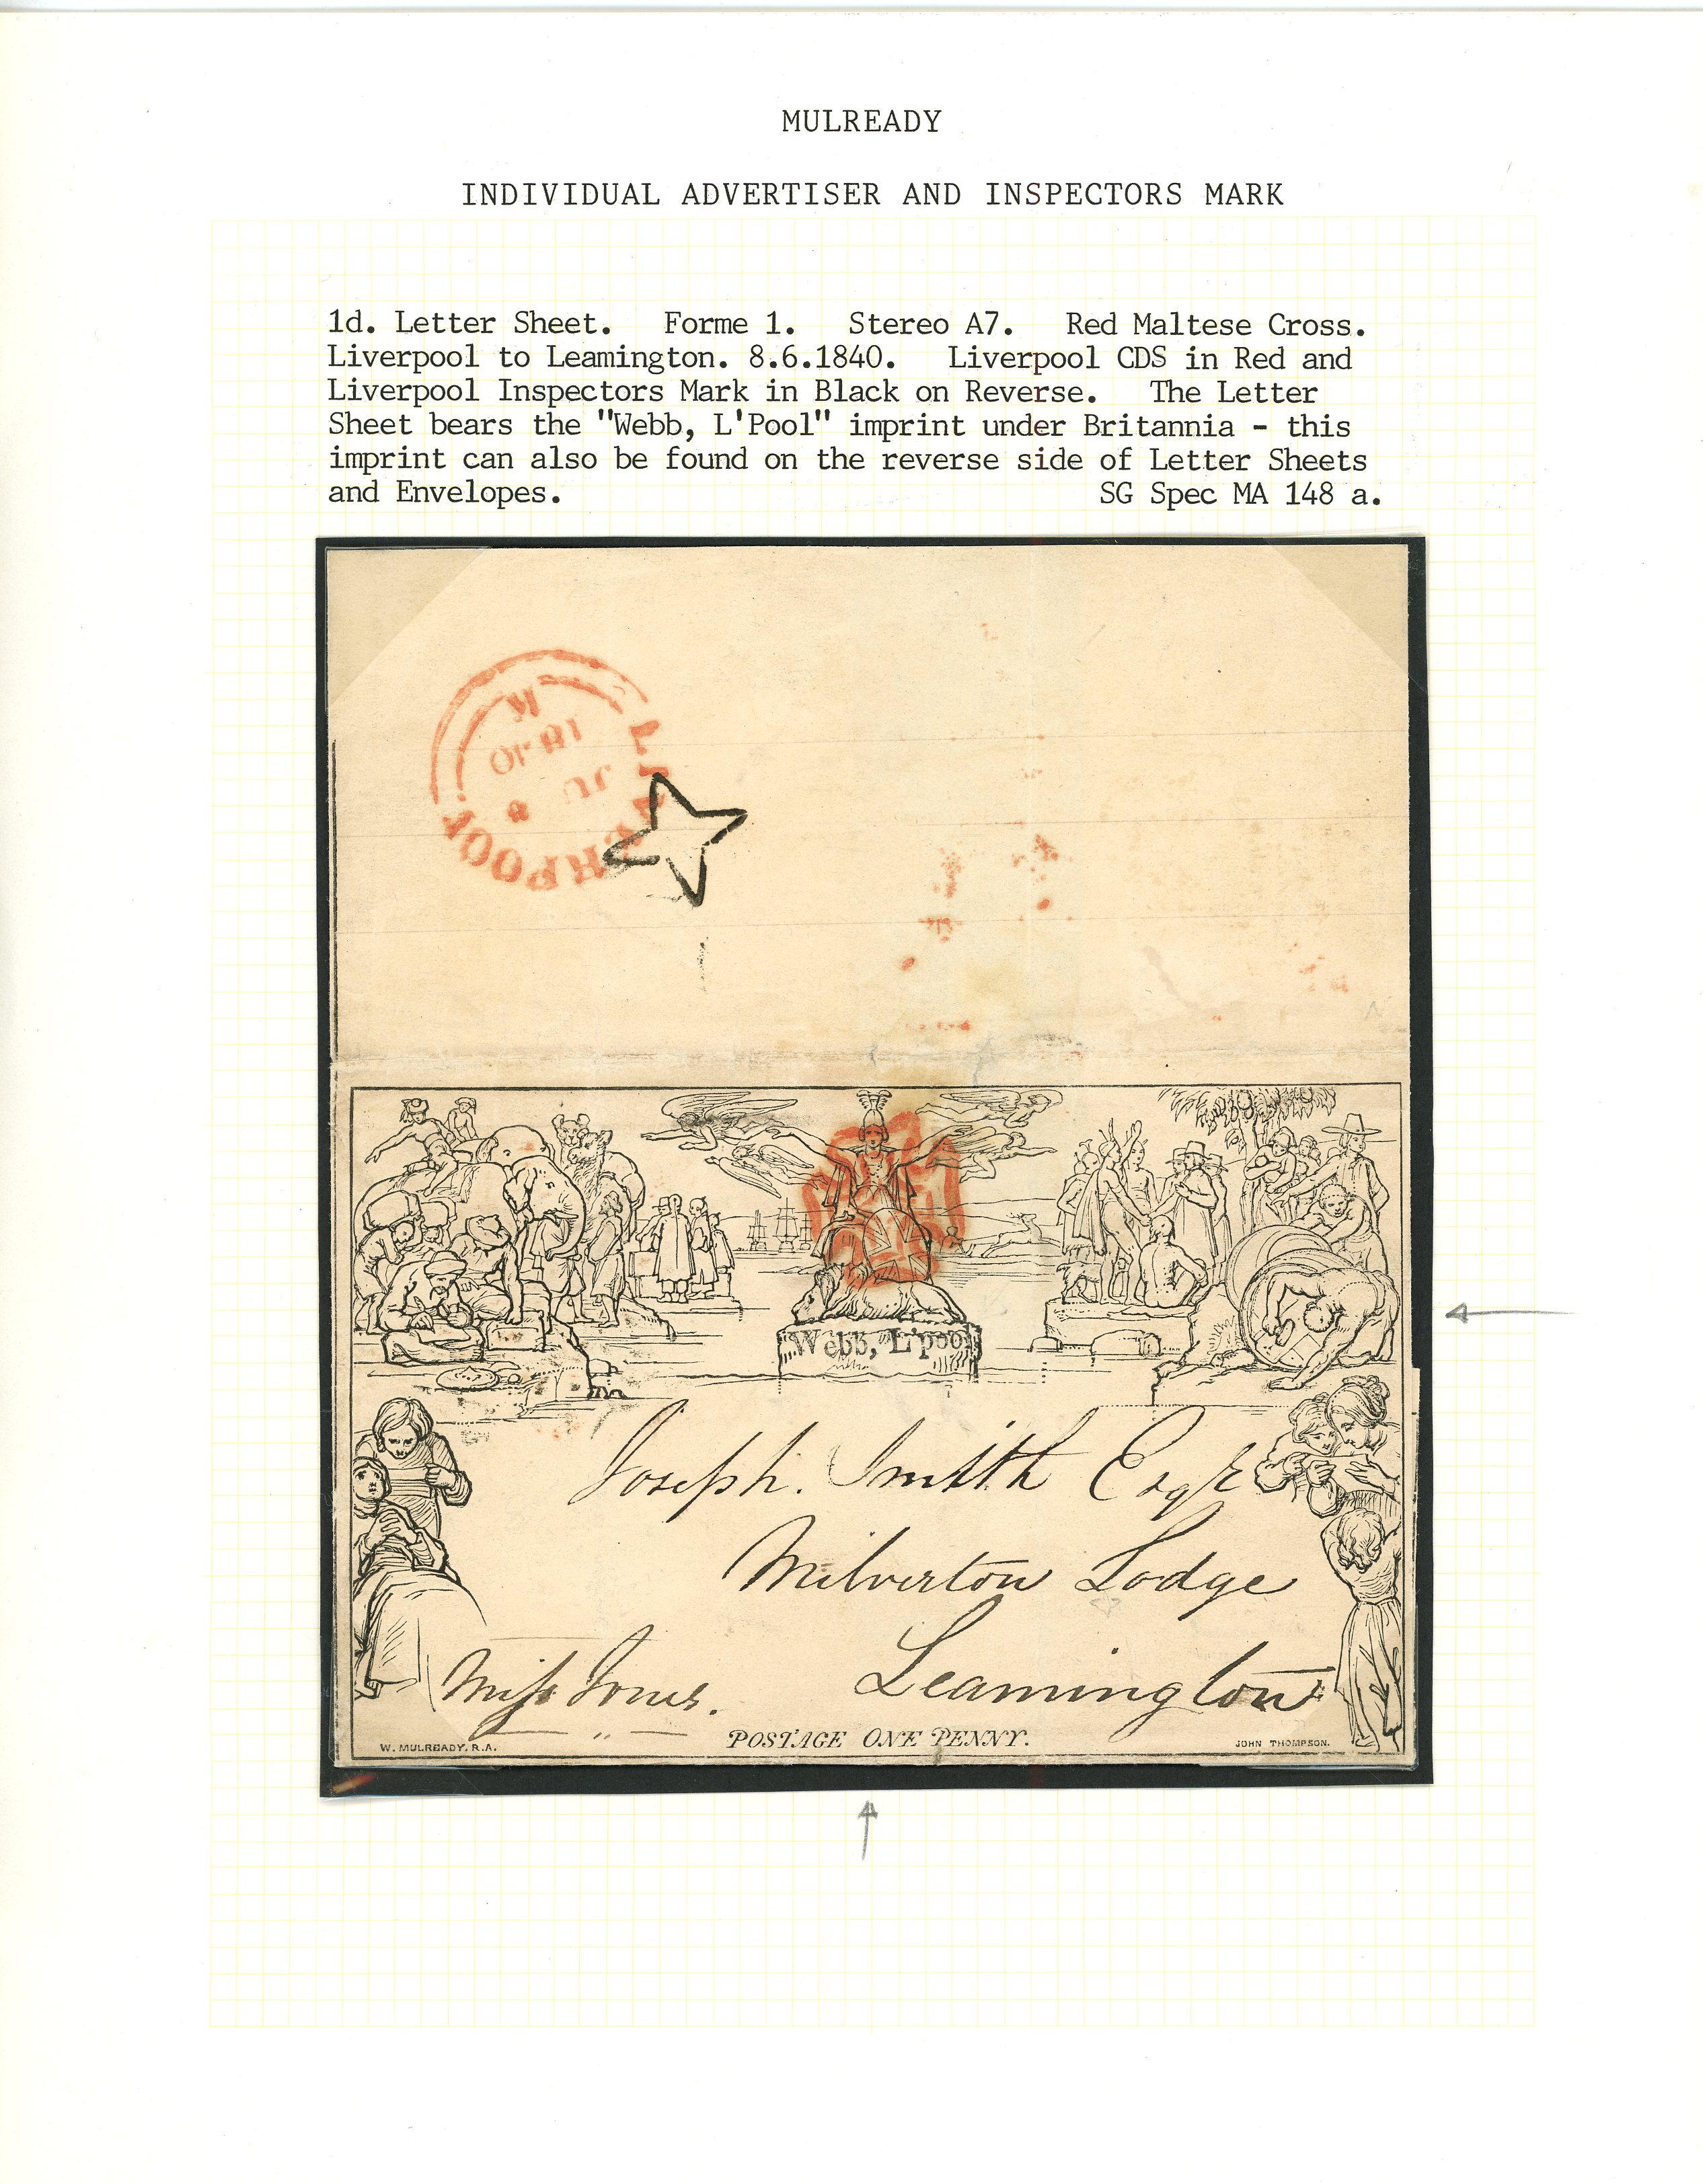 MULREADY
INDIVIDUAL ADVERTISER AND INSPECTORS MARK
1d. Letter Sheet. Forme 1. Stereo A7. Red Maltese Cross.
Liverpool to Leamington. 8.6.1840. Liverpool CDS in Red and
Liverpool Inspectors Mark in Black on Reverse. The Letter
Sheet bears the "Webb, L'Pool" imprint under Britannia - this
imprint can also be found on the reverse side of Letter Sheets
and Envelopes. SG Spec MA 148 a.
LIVERPOOL
JU 8
1840
Webb, L'pool
Joseph. Smith Esqre
Milverton Lodge
Leamington
Miss Jones.
POSTAGE ONE PENNY.
W. MULREADY. R.A.
JOHN THOMPSON.